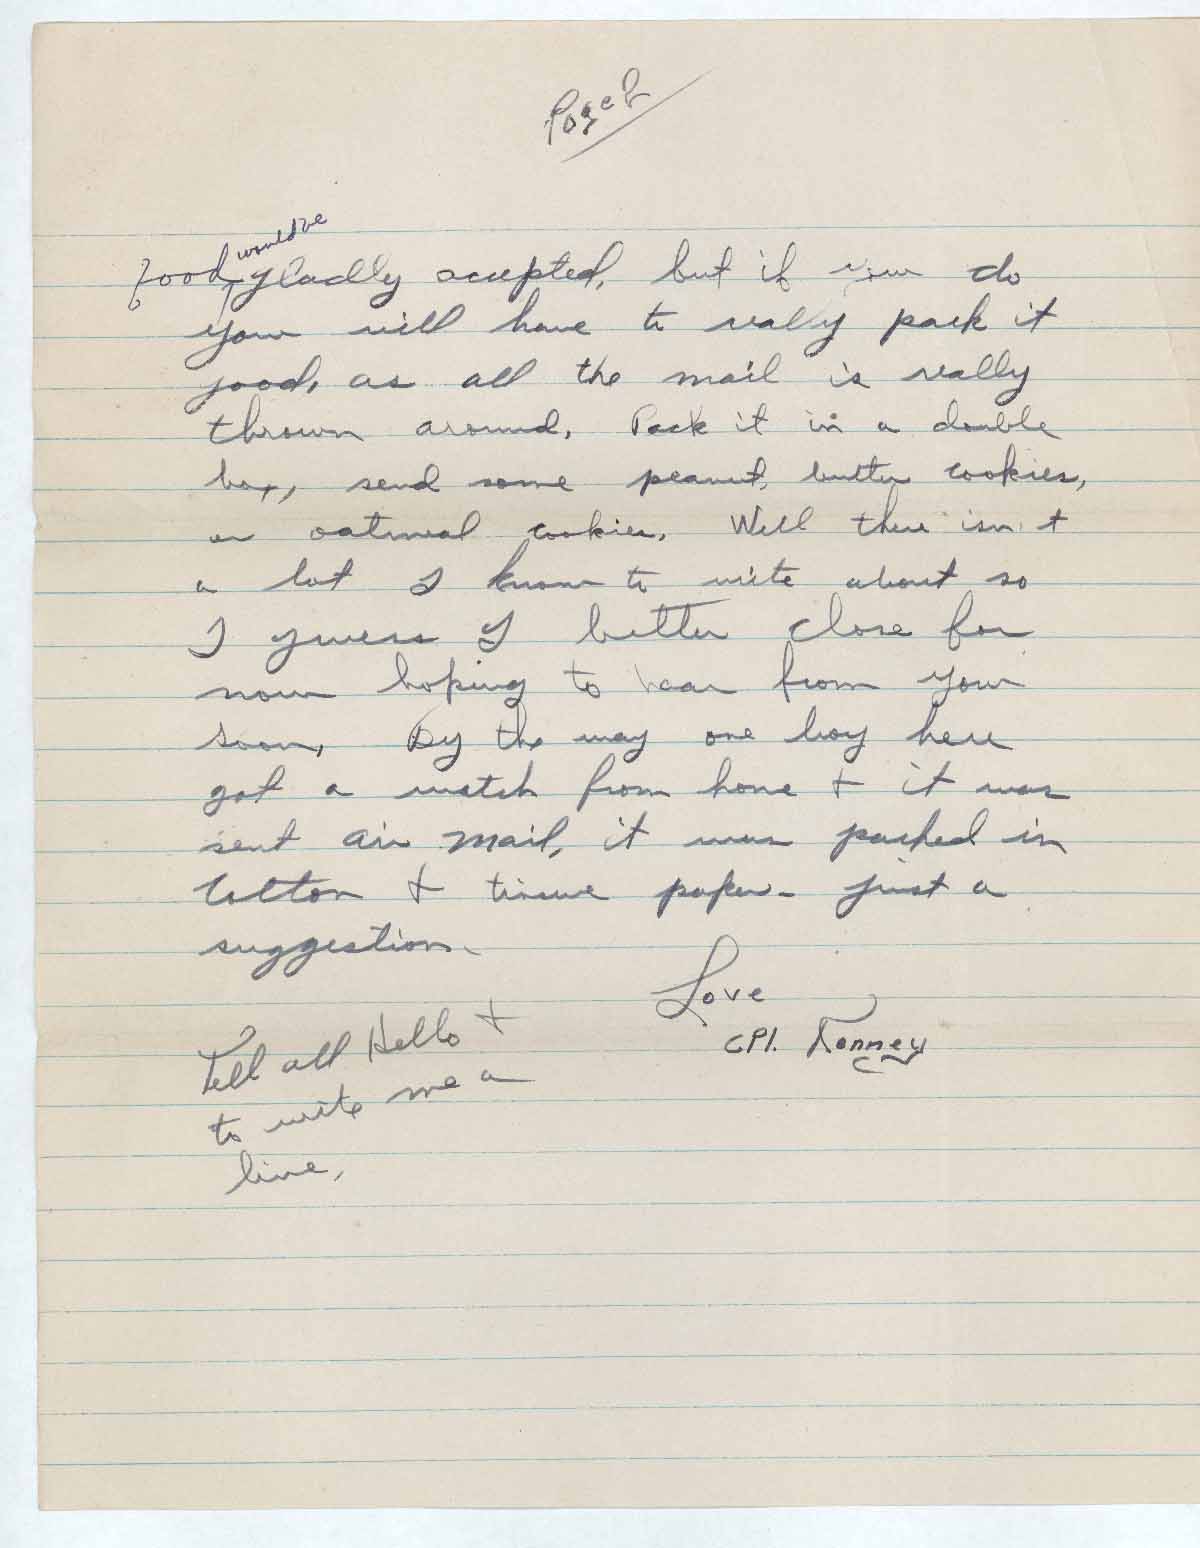 Page 2
would be
food, gladly accepted, but if you do
you will have to really pack it
good, as all the mail is really
thrown around. Pack it in a double
box, send some peanut, butter cookies,
or oatmeal cookies. Well there isn't
a lot I know to write about so
I guess I better close for
now hoping to hear from you
soon. By the way one boy here
got a watch from home + it was
sent air mail, it was packed in
cotton + tissue paper - just a
suggestion.
Love
CPl.
Tell all Hello +
to write me a
line,